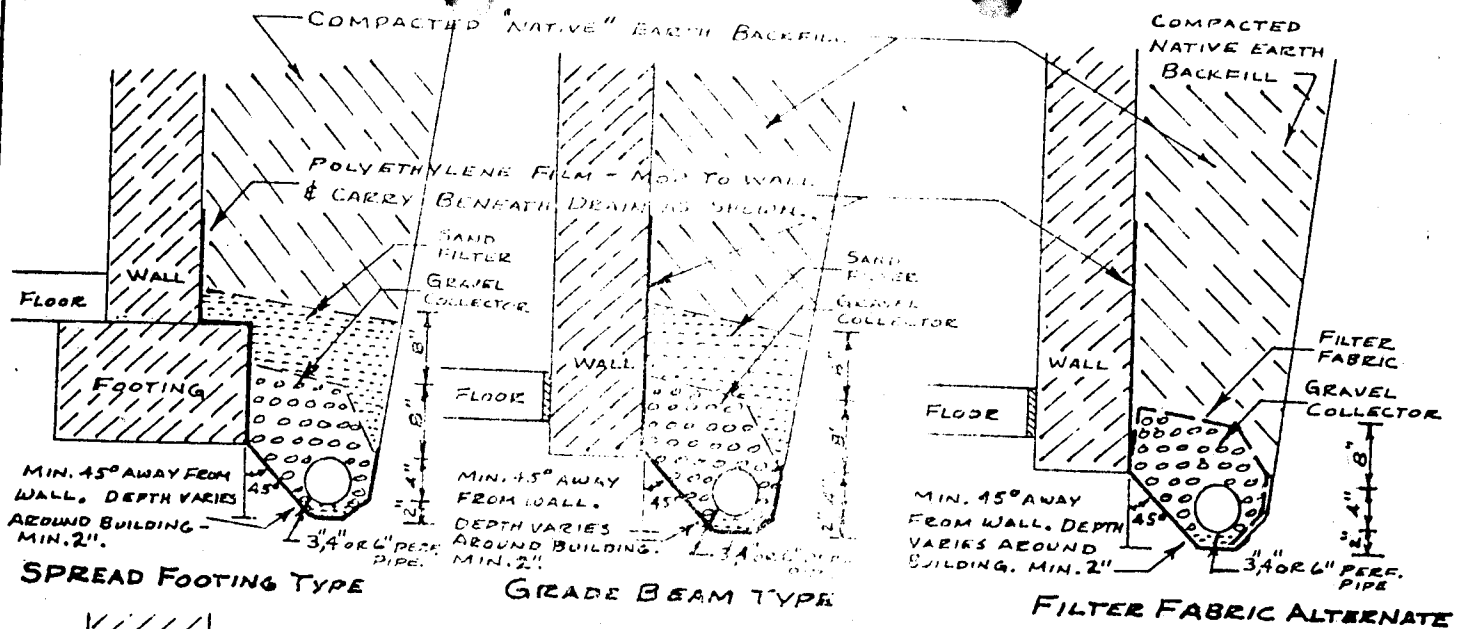 COMPACTED "NATIVE" EARTH BACKFILL
COMPACTED
NATIVE EARTH
BACKFILL
POLYETHYLENE FILM - MOP TO WALL
& CARRY BENEATH DRAIN AS SHOWN.
SAND
FILTER
GRAVEL
COLLECTOR
WALL
FLOOR
FOOTING
8"
8"
4"
2"
45°
MIN. 45° AWAY FROM
WALL. DEPTH VARIES
AROUND BUILDING -
MIN. 2".
3", 4" OR 6" PERF.
PIPE.
SPREAD FOOTING TYPE
SAND
FILTER
GRAVEL
COLLECTOR
WALL
FLOOR
45°
MIN. 45° AWAY
FROM WALL.
DEPTH VARIES
AROUND BUILDING.
MIN. 2"
3", 4" OR 6"
GRADE BEAM TYPE
FILTER
FABRIC
GRAVEL
COLLECTOR
WALL
FLOOR
8"
4"
2"
45°
MIN. 45° AWAY
FROM WALL. DEPTH
VARIES AROUND
BUILDING. MIN. 2"
3", 4" OR 6" PERF.
PIPE
FILTER FABRIC ALTERNATE